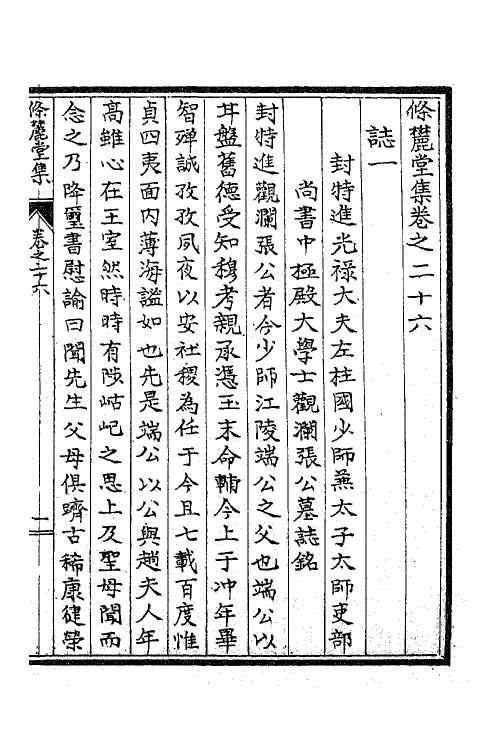 條麓堂集卷之二十六
誌一
封特進光祿大夫左柱國少師兼太子太師吏部
尚書中極殿大學士觀瀾張公墓誌銘
封特進觀瀾張公者今少師江陵端公之父也端公以
甘盤舊德受知穆考親承憑玉末命輔今上于冲年畢
智殫誠孜孜夙夜以安社稷為任于今且七載百度惟
貞四夷面内薄海謐如也先是端公以公與趙夫人年
高雖心在王室然時時有陟岵屺之思上及聖母聞而
念之乃降璽書慰諭曰聞先生父母俱躋古稀康健榮
條麓堂集
卷之二十六
一